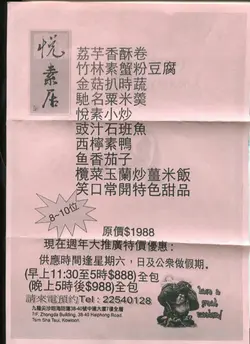 悅素居
荔芋香酥卷
竹林素蟹粉豆腐
金菇扒時蔬
馳名粟米羹
悅素小炒
豉汁石班魚
西檸素鴨
魚香茄子
欖菜玉蘭炒薑米飯
笑口常開特色甜品
8-10位
原價$1988
現在週年大推廣特價優惠:
供應時間逢星期六,日及公衆假期.
(早上11:30至5時$888)全包
(晚上5時後$988)全包
請來電預約Tel : 22540128
7/F, Zhongda Building, 38-40 Haiphong Road,
Tsim Sha Tsui, Kowloon
Have a great weekend!